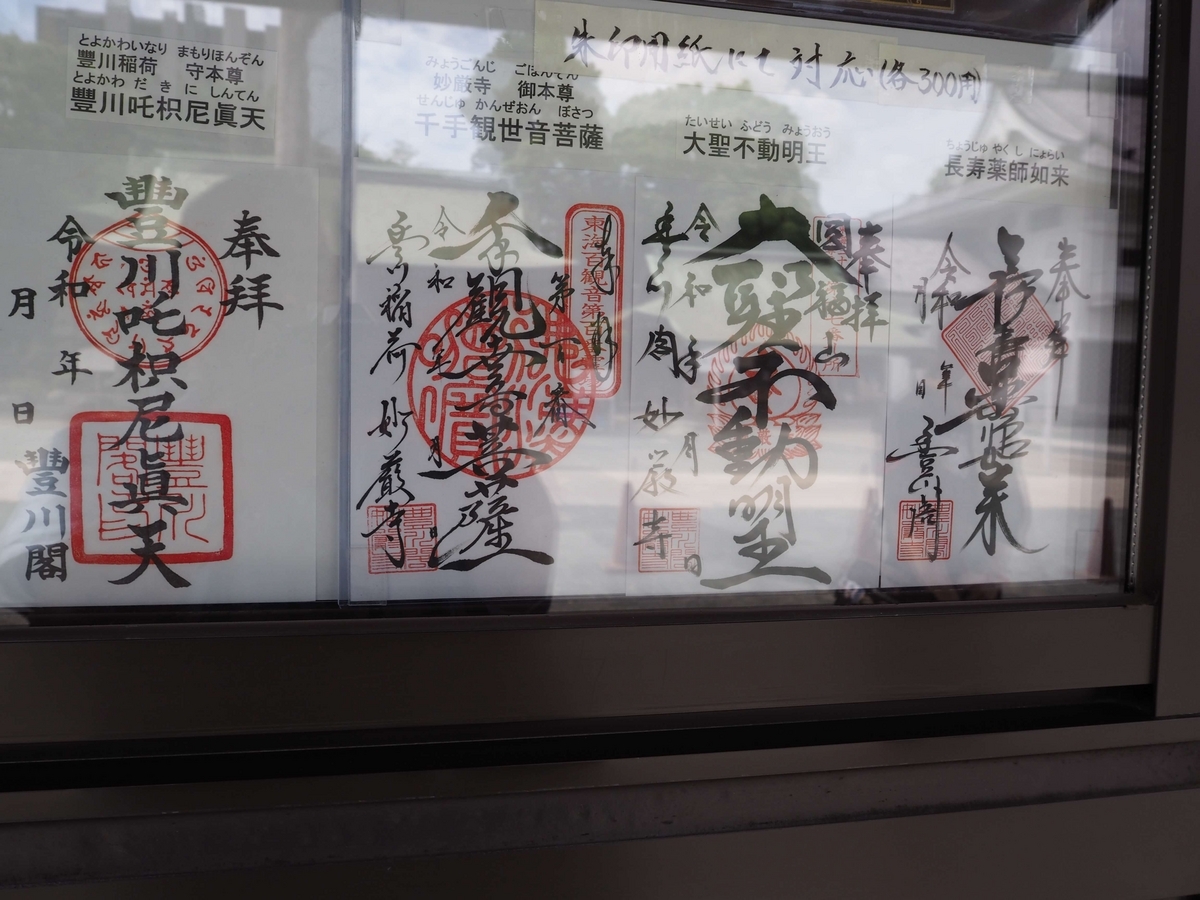 朱印用紙にて対応(各300円)
とよかわいなり まもりほんぞん
豐川稲荷 守本尊
とよかわ だ き に しんてん
豐川吒枳尼眞天
みょうごんじ ごほんぞん
妙厳寺 御本尊
せんじゅ かんぜおん ぼさつ
千手観世音菩薩
たいせい ふどう みょうおう
大聖不動明王
ちょうじゅ やく し にょらい
長寿薬師如来
奉拝
豐川吒枳尼眞天
令和 年 月 日
豐川閣
東海百観音第百番
令和 年 月
豊川稲荷 妙厳寺
奉拝
大聖不動明王
令和 年 月 日
豊川閣 妙厳寺
奉拝
令和 年 月 日
豊川閣